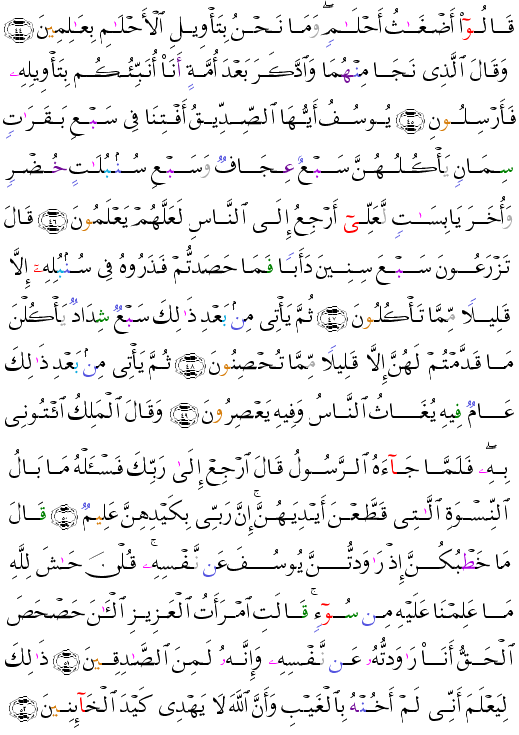 قَالُوٓا۟ أَضْغَـٰثُ أَحْلَـٰمٍۢ ۖ وَمَا نَحْنُ بِتَأْوِيلِ ٱلْأَحْلَـٰمِ بِعَـٰلِمِينَ ﴿٤٤﴾
وَقَالَ ٱلَّذِى نَجَا مِنْهُمَا وَٱدَّكَرَ بَعْدَ أُمَّةٍ أَنَا۠ أُنَبِّئُكُم بِتَأْوِيلِهِۦ
فَأَرْسِلُونِ ﴿٤٥﴾ يُوسُفُ أَيُّهَا ٱلصِّدِّيقُ أَفْتِنَا فِى سَبْعِ بَقَرَٰتٍۢ
سِمَانٍۢ يَأْكُلُهُنَّ سَبْعٌ عِجَافٌۭ وَسَبْعِ سُنۢبُلَـٰتٍ خُضْرٍۢ
وَأُخَرَ يَابِسَـٰتٍۢ لَّعَلِّىٓ أَرْجِعُ إِلَى ٱلنَّاسِ لَعَلَّهُمْ يَعْلَمُونَ ﴿٤٦﴾ قَالَ
تَزْرَعُونَ سَبْعَ سِنِينَ دَأَبًۭا فَمَا حَصَدتُّمْ فَذَرُوهُ فِى سُنۢبُلِهِۦٓ إِلَّا
قَلِيلًۭا مِّمَّا تَأْكُلُونَ ﴿٤٧﴾ ثُمَّ يَأْتِى مِنۢ بَعْدِ ذَٰلِكَ سَبْعٌۭ شِدَادٌۭ يَأْكُلْنَ
مَا قَدَّمْتُمْ لَهُنَّ إِلَّا قَلِيلًۭا مِّمَّا تُحْصِنُونَ ﴿٤٨﴾ ثُمَّ يَأْتِى مِنۢ بَعْدِ ذَٰلِكَ
عَامٌۭ فِيهِ يُغَاثُ ٱلنَّاسُ وَفِيهِ يَعْصِرُونَ ﴿٤٩﴾ وَقَالَ ٱلْمَلِكُ ٱئْتُونِى
بِهِۦ ۖ فَلَمَّا جَآءَهُ ٱلرَّسُولُ قَالَ ٱرْجِعْ إِلَىٰ رَبِّكَ فَسْـَٔلْهُ مَا بَالُ
ٱلنِّسْوَةِ ٱلَّـٰتِى قَطَّعْنَ أَيْدِيَهُنَّ ۚ إِنَّ رَبِّى بِكَيْدِهِنَّ عَلِيمٌۭ ﴿٥٠﴾ قَالَ
مَا خَطْبُكُنَّ إِذْ رَٰوَدتُّنَّ يُوسُفَ عَن نَّفْسِهِۦ ۚ قُلْنَ حَـٰشَ لِلَّهِ
مَا عَلِمْنَا عَلَيْهِ مِن سُوٓءٍۢ ۚ قَالَتِ ٱمْرَأَتُ ٱلْعَزِيزِ ٱلْـَٔـٰنَ حَصْحَصَ
ٱلْحَقُّ أَنَا۠ رَٰوَدتُّهُۥ عَن نَّفْسِهِۦ وَإِنَّهُۥ لَمِنَ ٱلصَّـٰدِقِينَ ﴿٥١﴾ ذَٰلِكَ
لِيَعْلَمَ أَنِّى لَمْ أَخُنْهُ بِٱلْغَيْبِ وَأَنَّ ٱللَّهَ لَا يَهْدِى كَيْدَ ٱلْخَآئِنِينَ ﴿٥٢﴾